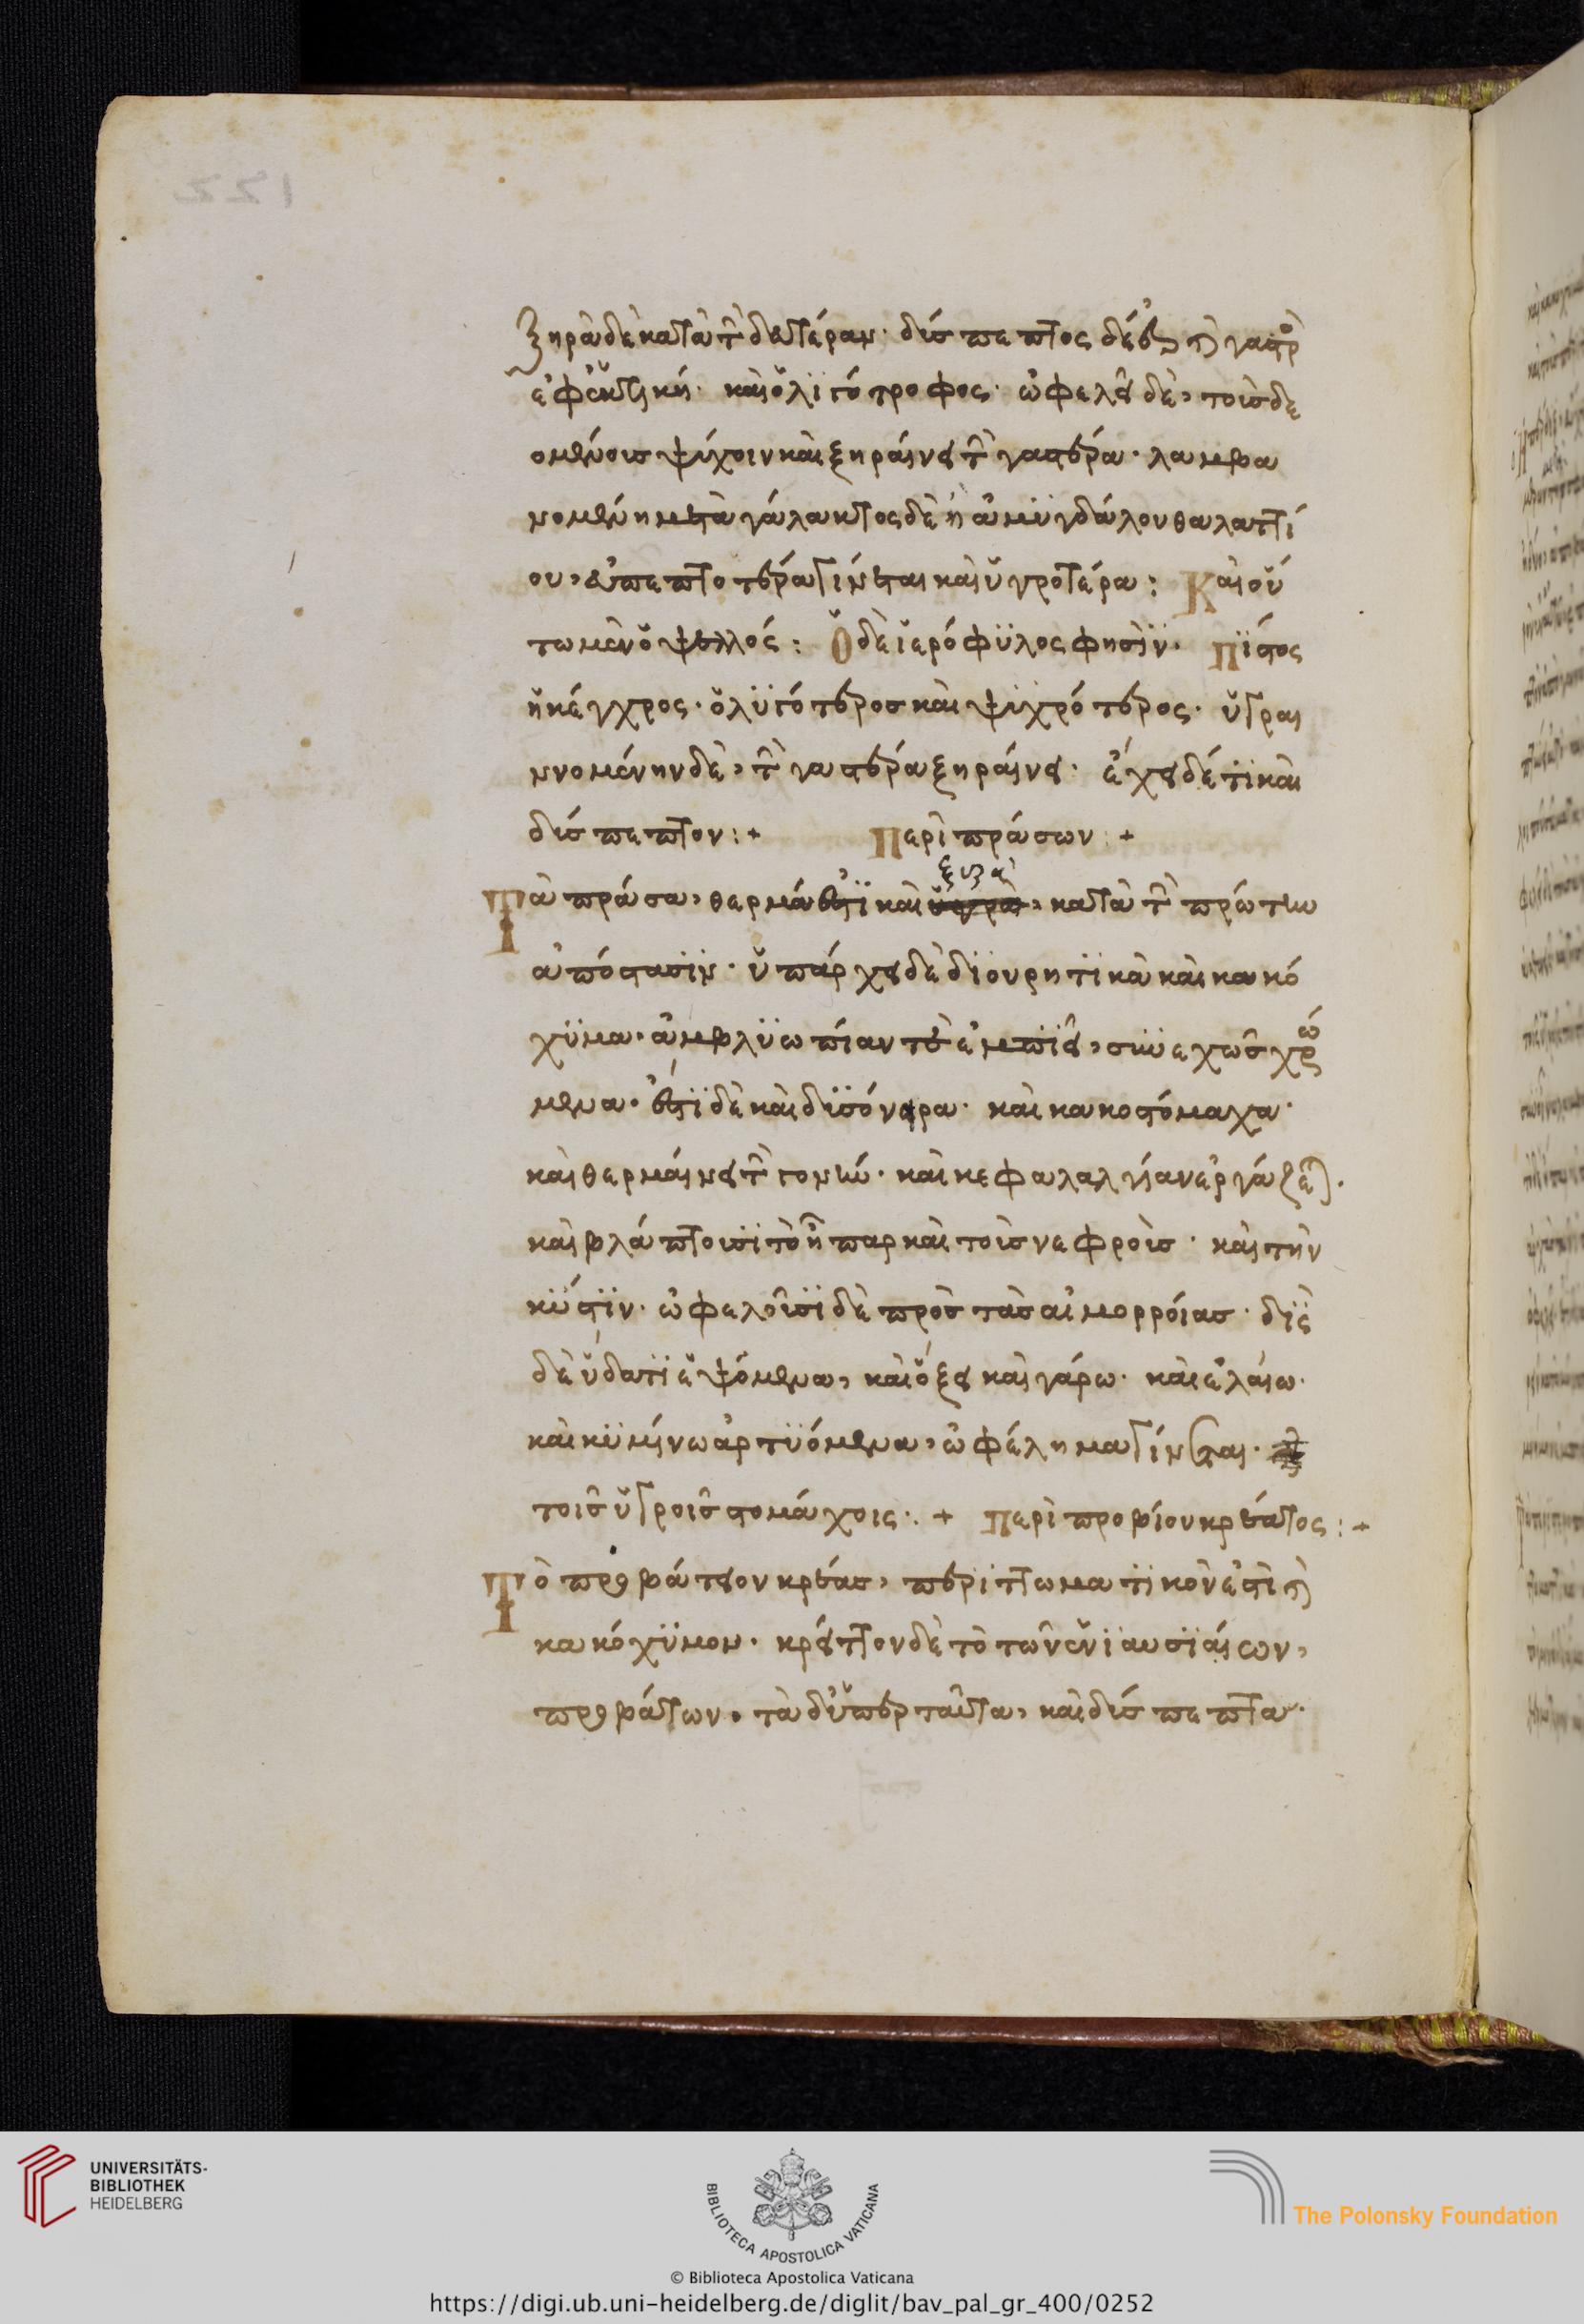 ξηρὰ δὲ κατὰ τὴν δευτέραν· δύσπεπτος δέ ἐστι καὶ γαστρὸς
ἐφεκτικὴ· καὶ ὀλιγότροφος· ὠφελεῖ δὲ, τοῖς δε
ομένοις ψύχειν καὶ ξηραίνει τὴν γαστέρα· λαμβα
νομένη μετὰ γάλακτος δὲ ἢ ἀμυγδάλου θαλαττί
ου, εὐπεπτοτέρα γίνεται καὶ ὑγροτέρα: Καὶ οὕ
τω μὲν ὁ ψελλός: Ὁ δὲ ἱερόφιλος φησὶν· Πίστος
ἢ κέγχρος· ὀλιγότερος καὶ ψυχρότερος· ὑγραι
νομένην δὲ, τὴν γαστέρα ξηραίνει· ἔχει δέ τι καὶ
δύσπεπτον:+ Περὶ πράσων:+
ξηρὰ
Τὰ πράσα, θερμά ἐστι καὶ ὑγρὰ, κατὰ τὴν πρώτην
ἀπόστασιν· ὑπάρχει δὲ διουρητικὰ καὶ κακό
χυμα· ἀμβλυωπίαν τε ἐμποιεῖ, συνεχῶς χρώ
μενα· ἔστι δὲ καὶ δυσόνειρα· καὶ κακοστόμαχα·
καὶ θερμαίνει τὴν γονὴν· καὶ κεφαλαλγίαν ἐργάζεται·
καὶ βλάπτουσι τὸ ἧπαρ καὶ τοῖς νεφροῖς· καὶ τὴν
κύστιν· ὠφελοῦσι δὲ πρὸς τὰς αἱμορροίας· δὶς
δὲ ὕδατι ἑψόμενα, καὶ ὄξει καὶ γάρω· καὶ ἐλαίω·
καὶ κυμίνω ἀρτυόμενα, ὠφέλημα γίνεται·
τοῖς ὑγροῖς στομάχοις:+ Περὶ προβίου κρέατος:+
Τὸ προβάτειον κρέας, περιττωματικόν ἐστὶ καὶ
κακόχυμον· κρεῖττον δὲ τὸ τῶν ἐνιαυσιαίων,
προβάτων· τὰ δ' ὑπὲρ ταῦτα, καὶ δύσπεπτα·
UNIVERSITÄTS-
BIBLIOTHEK
HEIDELBERG
BIBLIOTECA APOSTOLICA VATICANA
The Polonsky Foundation
© Biblioteca Apostolica Vaticana
https://digi.ub.uni-heidelberg.de/diglit/bav_pal_gr_400/0252